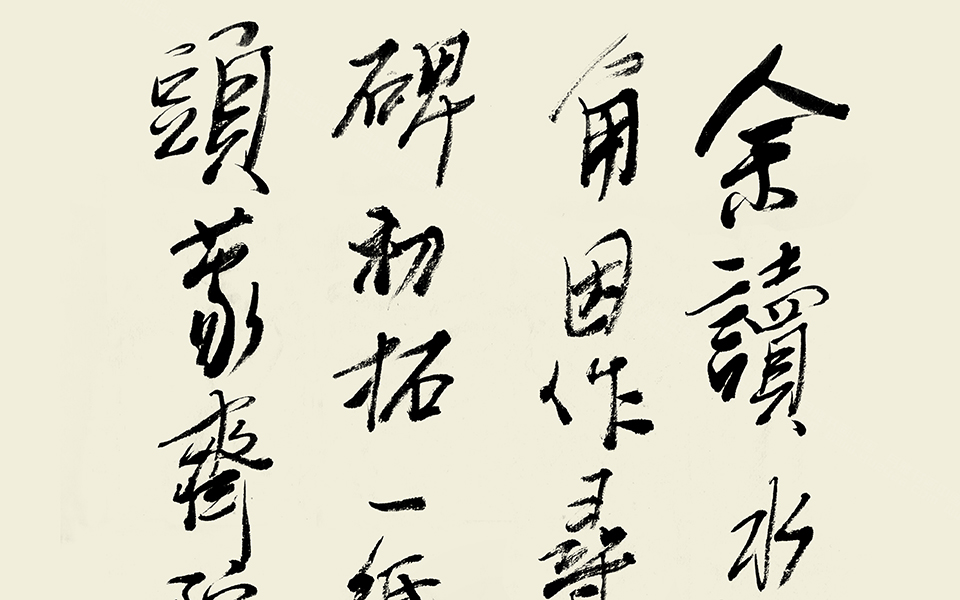 余讀水
角因作尋
碑初拓一紙
頭蒙齋